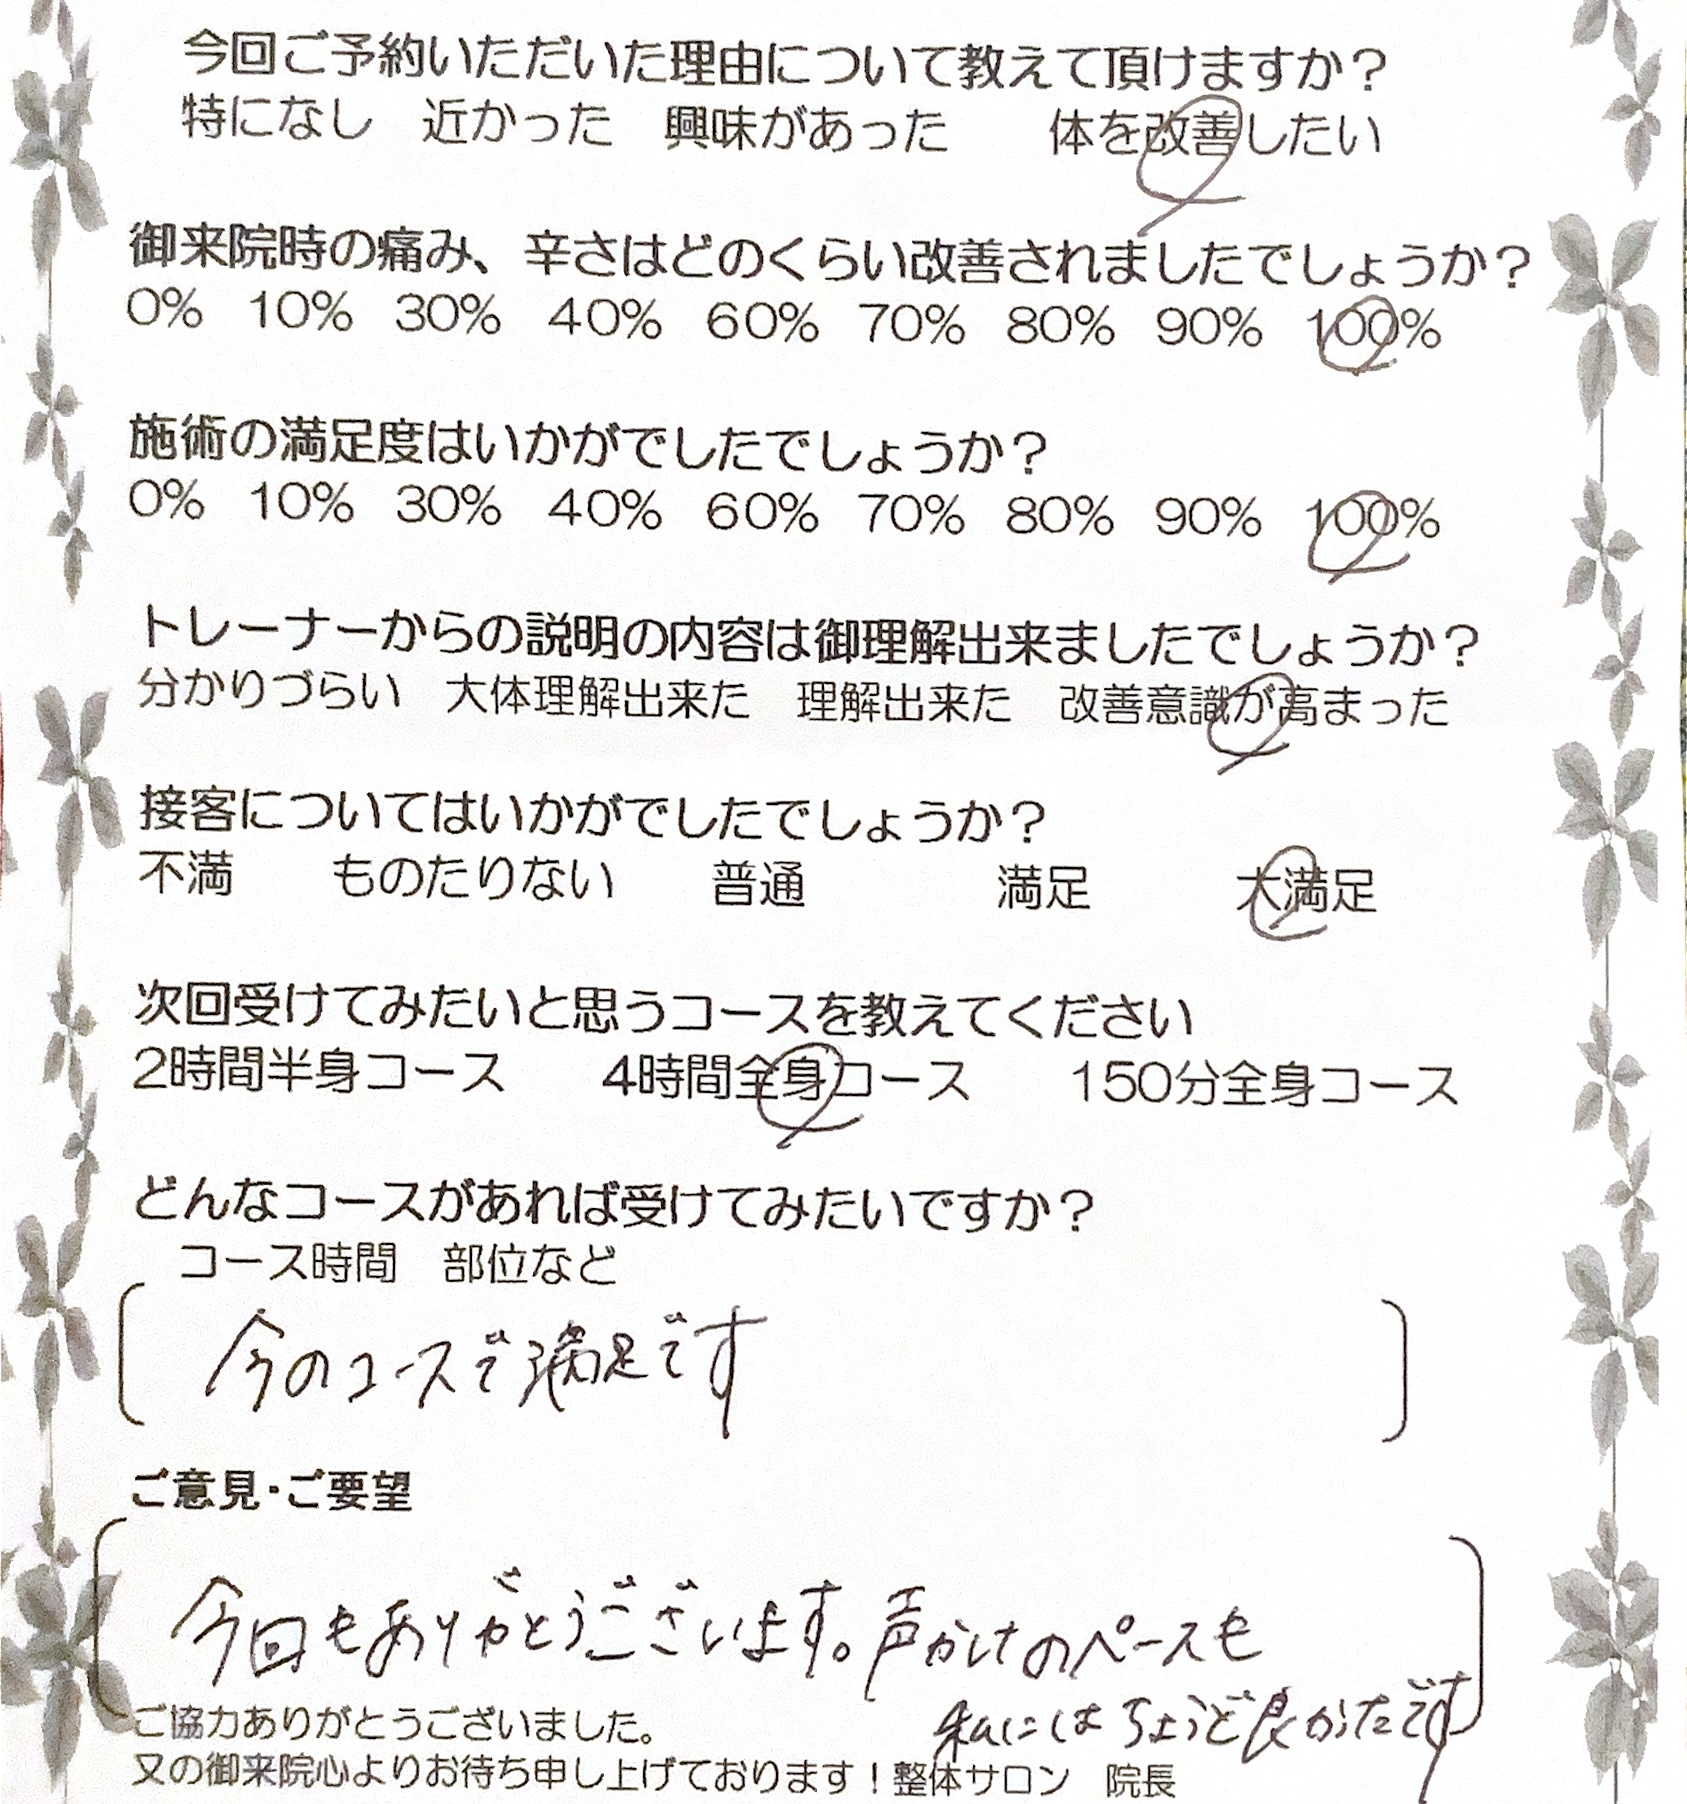 今回ご予約いただいた理由について教えて頂けますか？
特になし　近かった　興味があった　体を改善したい
御来院時の痛み、辛さはどのくらい改善されましたでしょうか？
0%　10%　30%　40%　60%　70%　80%　90%　100%
施術の満足度はいかがでしたでしょうか？
0%　10%　30%　40%　60%　70%　80%　90%　100%
トレーナーからの説明の内容は御理解出来ましたでしょうか？
分かりづらい　大体理解出来た　理解出来た　改善意識が高まった
接客についてはいかがでしたでしょうか？
不満　ものたりない　普通　満足　大満足
次回受けてみたいと思うコースを教えてください
2時間半身コース　4時間全身コース　150分全身コース
どんなコースがあれば受けてみたいですか？
コース時間　部位など
今のコースで満足です
ご意見・ご要望
今回もありがとうございます。声かけのペースも
私にはちょうど良かったです
ご協力ありがとうございました。
又の御来院心よりお待ち申し上げております！整体サロン　院長